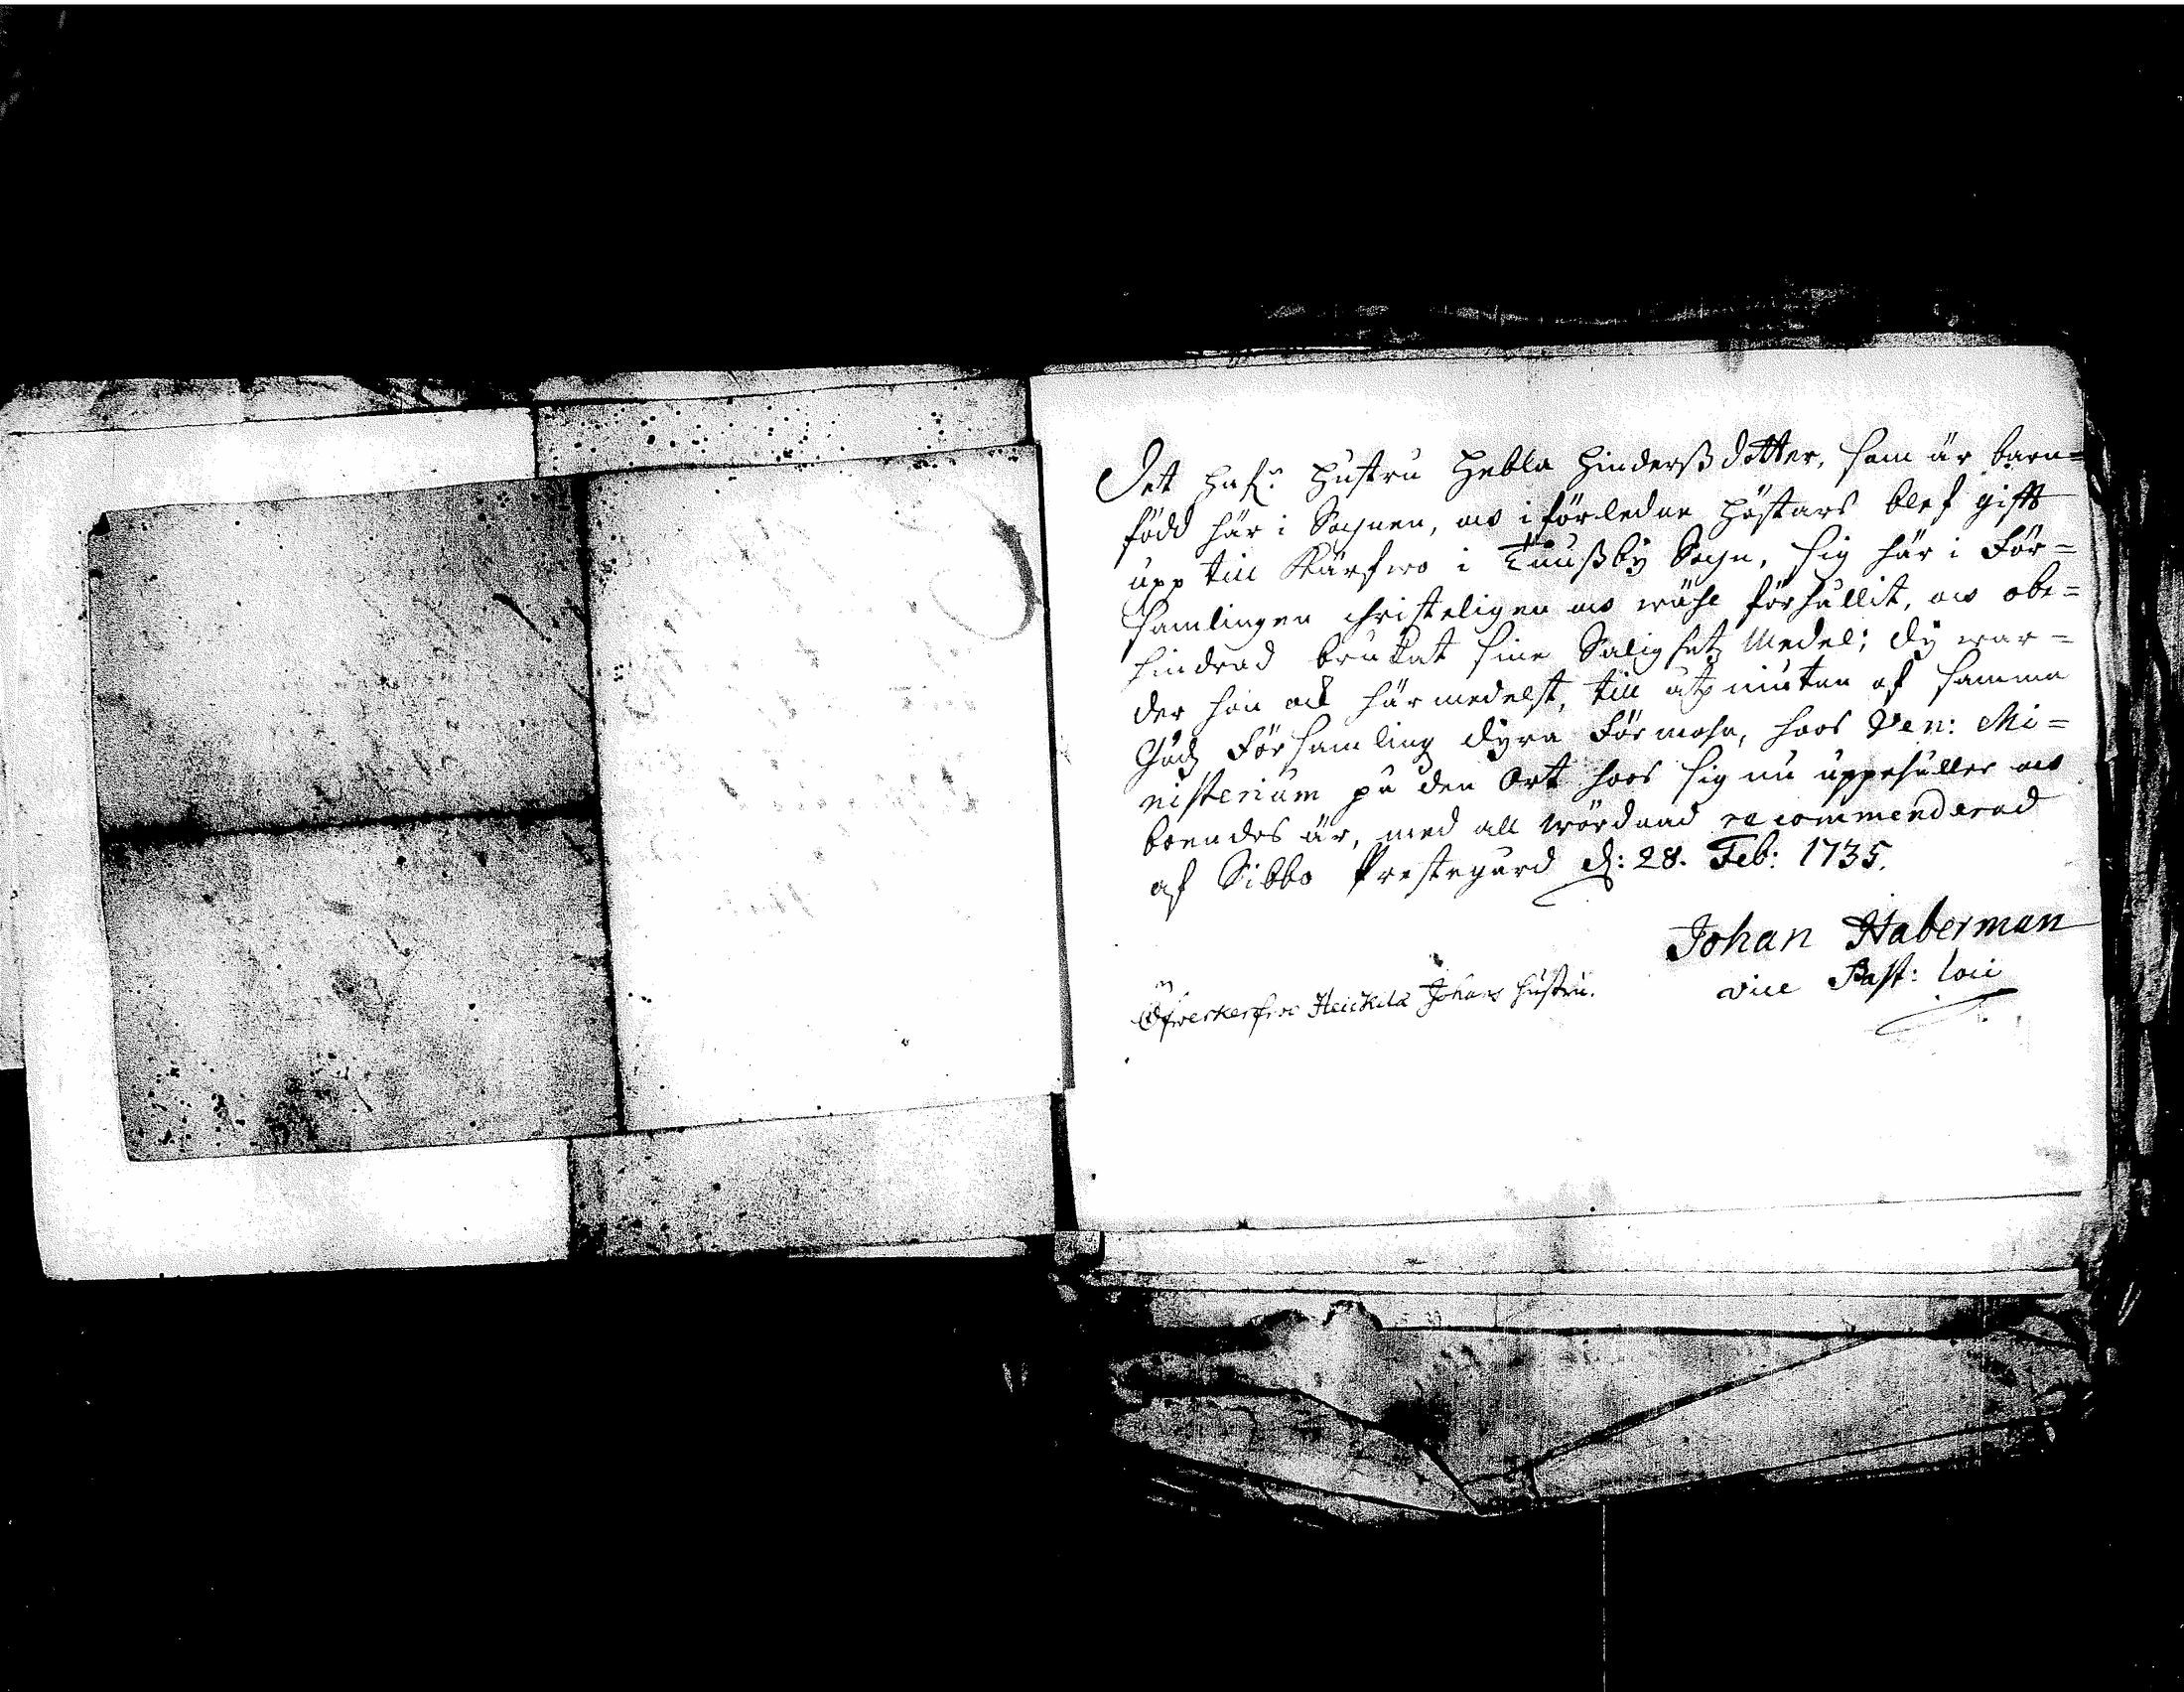 Det haf.r hustru Hebla Hinderß dotter, som är barn=
född här i Sochnen, och i förledne höstars blef gifft
upp till Kärfwo i Tuußby Sochn, sig här i För=
samlingen christeligen och wähl förhållit, och obe=
hindrad brukat sine Salighetz Medel; dy war=
der hon ock härmedelst, till åtniutan af samma
Gudz Församling dyra Förmohn, hoos Ven: Mi=
nisterium på den Ort hoos sig nu uppehåller och
boendes är, med all wördnad recommenderad
af Sibbo Prestegård d: 28. Feb: 1735.
Johan Haberman
vice Past: loci
Öfwerkerfwo Heickilä Johans hustru.